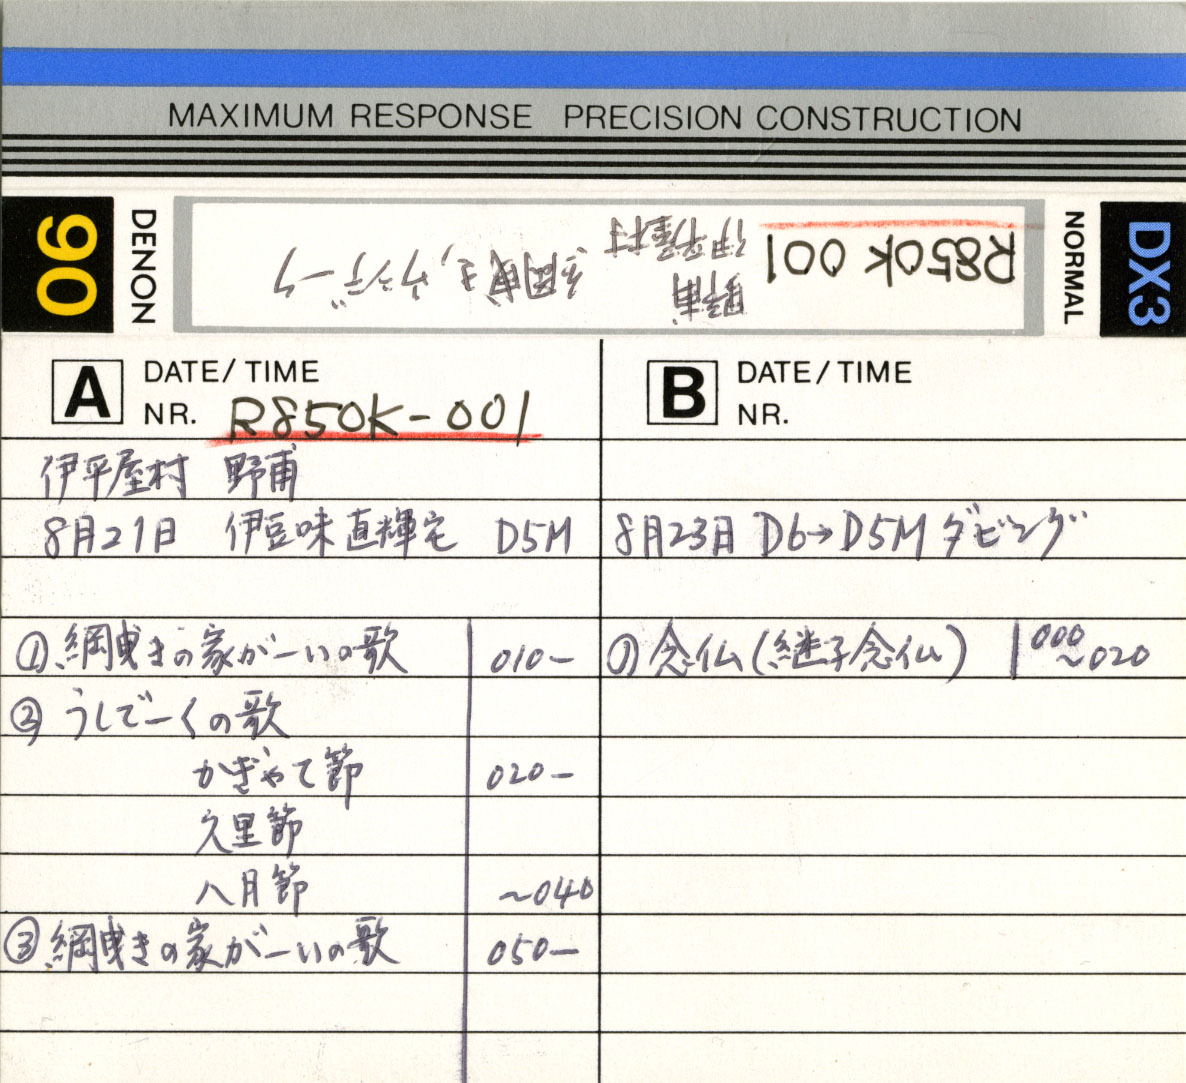 MAXIMUM RESPONSE PRECISION CONSTRUCTION
90
DENON
R850K 001
伊平屋村
野甫
綱曳き,ウシデーク
NORMAL
DX3
A DATE/TIME
NR. R850K-001
伊平屋村 野甫
8月21日 伊豆味直輝宅 D5M
①綱曳きの家がーいの歌 010-
②うしでーくの歌
かぎやて節 020-
久里節
八月節 ~040
③綱曳きの家がーいの歌 050-
B DATE/TIME
NR.
8月23日 D6→D5Mダビング
①念仏(継子念仏) 000~020